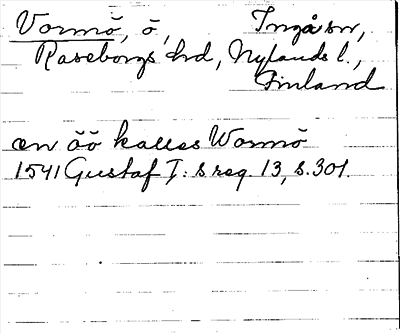 Vormö, ö, Ingå sn,
Raseborgs hd, Nylands l.,
Finland
en öö kallas Wormö
1541 Gustaf I: s reg. 13, s. 301.